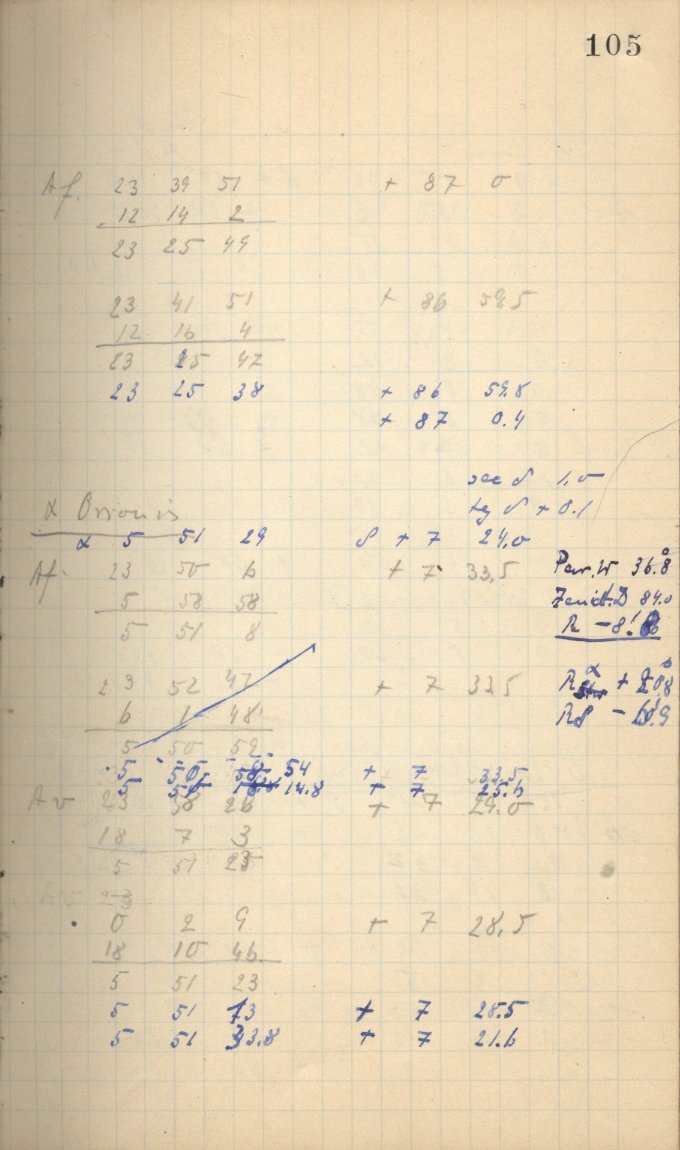 105
Af. 23 39 51 + 87 0
12 14 2
23 25 49
23 41 51 + 86 59.5
12 16 4
23 25 47
23 25 38 + 86 59.8
+ 87 0.4
sec δ 1.0
tg δ + 0.1
α Orionis
α 5 51 29 δ + 7 24.0
Af. 23 50 6 + 7 33.5
5 58 58
5 51 8
Par. W 36.8
Zenit. D 84.0
R - 8!
23 52 47 + 7 32.5
6 1 48
5 50 59
R α +
R δ -
5 50 54 + 7 33.5
5 14.8 + 7 25.6
Av 23 58 26 + 7 29.0
18 7 3
5 51 23
Av 23
0 2 9 + 7 28.5
18 10 46
5 51 23
5 51 13 + 7 28.5
5 51 33.8 + 7 21.6